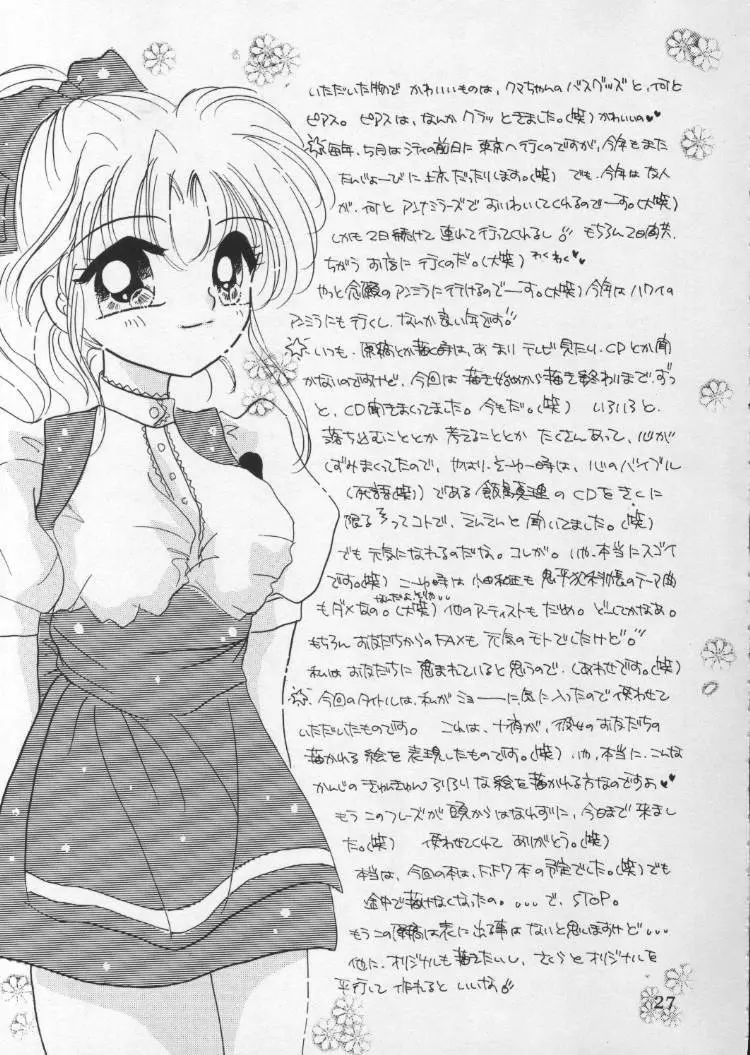 いただいた物で かわいいものは、クマちゃんのバスグッズと、何と
ピアス。ピアスは、なんかクラッときました。(笑) かわいいの♥♥
☆毎年、5月はシティの前日に東京へ行くのですが、今年もまた
たんじょーびに上京だったりします。(笑) でも、今年は友人
が、何と アンナミラーズで おいわいしてくれるので──す。(大笑)
しかも2日続けて 連れて行ってくれるし もちろん2日共、
ちがう お店に 行くのだ。(大笑) わくわく♥
やっと念願のアンミラに行けるので──す。(大笑) 今年はハワイの
アンミラにも行くし、なんか良い年です。
☆いつも、原稿とか描く時は、あまり テレビ見たり、CDとか聞
かないのですけど、今回は描き始めから描き終わりまで、ずっ
と、CD聞きまくってました。今もだ。(笑) いろいろと、
落ち込むこととか 考えることとか たくさんあって、心が
しずみまくってたので、やはり、そーゆー時は、心のバイブル
(死語(笑)) である 飯島真理のCDをきくに
限る ってコトで、えんえんと 聞いてました。(笑)
でも 元気になれるのだな。コレが。いや、本当にスゴイ
です。(笑) こーゆー時は 小田和正も 鬼平犯科帳のテーマ曲
もダメなの。(大笑) 他のアーティストも だめ。どーしてかなあ。
もちろん お友だちからのFAXも 元気のモトでしたけど。
私は お友だちに 恵まれていると思うので、しあわせです。(笑)
☆今回のタイトルは、私が ミョーに、気に入ったので 使わせて
いただいたものです。 これは、 が、彼女のお友だちの
描かれる絵を 表現したものです。(笑) いや、本当に、こんな
かんじの きゅんきゅん ぷりぷり な絵を 描かれる方なのですよ♥♥
もう このフレーズが 頭からはなれずに、今日まで 来まし
た。(笑) 使わせてくれて ありがとう。(笑)
本当は、今回の本は、FF7 本の予定でした。(笑) でも
途中で描けなくなったの。。。。で、STOP。
もうこの原稿は表に出る事は ないと思いますけど。。。
他に、オリジナルも描きたいし、さくらとオリジナルを
平行して 作れると いいな
27